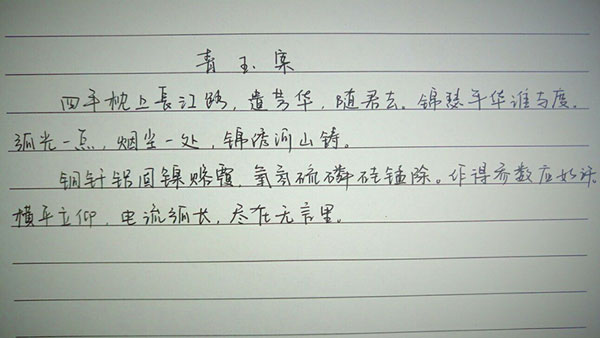 青玉案
四年枕上長江路，遣芳华，随君去。锦瑟年华谁与度，
弧光一点，烟尘一处，锦绣河山铸。
铜针铝圆镍铬，氧氢硫磷硅锰除。得参数应如许
横平立仰，电流弧长，尽在无言里。